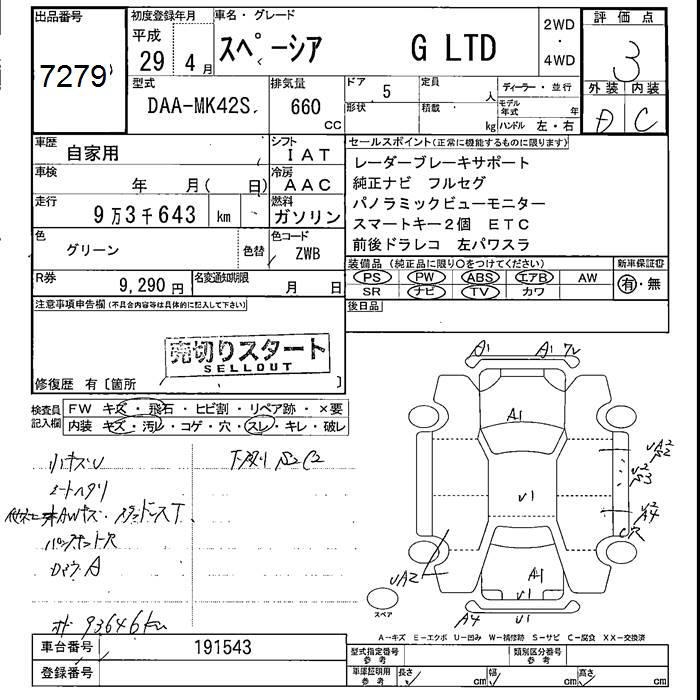 出品番号
7279
初度登録年月
平成
29 4 月
車名・グレード
スペーシア G LTD
2WD
・
4WD
評価点
3
外装 内装
D C
型式
DAA-MK42S
排気量
660
CC
ドア 5
形状
定員 人
積載 kg
ディーラー・並行
モデル年式 年
ハンドル 左・右
車歴 自家用
シフト IAT
車検 年 月( 日)
冷房 AAC
走行 9万3千643 km
燃料 ガソリン
色 グリーン
色替
色コード ZWB
R券 9,290円
名変通知期限 月 日
セールスポイント(正常に機能するものに限ります)
レーダーブレーキサポート
純正ナビ フルセグ
パノラミックビューモニター
スマートキー2個 ETC
前後ドラレコ 左パワスラ
装備品(純正品に限り○をつけてください)
新車保証書
PS PW ABS エアB AW
SR ナビ TV カワ
有・無
後日品
注意事項申告欄(不具合内容等は具体的に記入して下さい)
売切りスタート
SELLOUT
修復歴 有〔箇所 〕
検査員
記入欄
FW キズ・飛石・ヒビ割・リペア跡・×要
内装 キズ・汚レ・コゲ・穴・スレ・キレ・破レ
小キズU
シートヘタリ
下廻り S2C2
A
93646km
A1
A1
A1
U1
A1
UA2
A4
U1
スペア
A-キズ E-エクボ U-凹み W-補修跡 S-サビ C-腐食 XX-交換済
車台番号 191543
登録番号
型式指定番号
参考
類別区分番号
参考
車庫証明用
参考
長さ cm 幅 cm 高さ cm